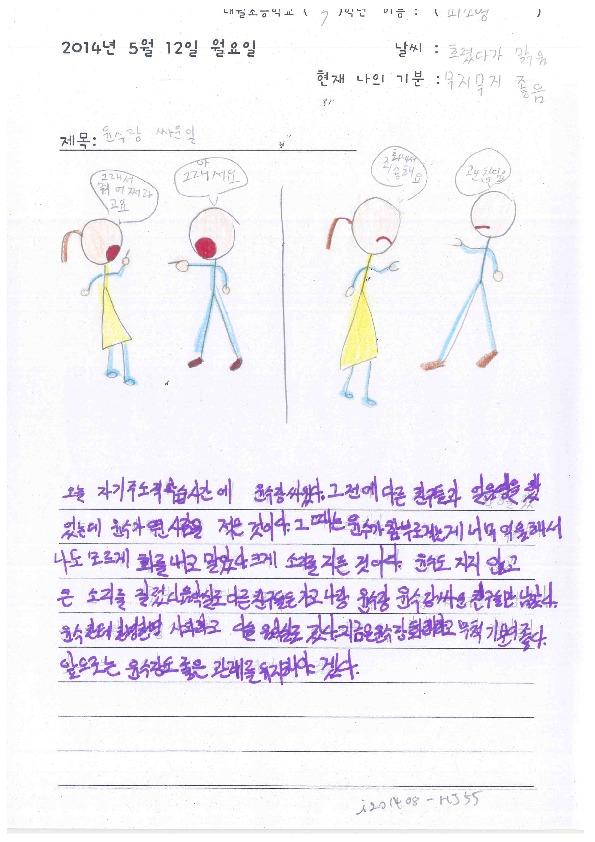 대월초등학교 ( 3 )학년 이름 : ( 피소영 )
2014년 5월 12일 월요일
날씨 : 흐렸다가 맑음
현재 나의 기분 : 무지무지 좋음
제목: 윤수랑 싸운일
그래서
뭐 어쩌라
고요
아
그래서요
화내서
미안해요
괜찮아요
오늘 자기주도적 학습시간에 윤수랑 싸웠다. 그전에 다른 친구들과
있는데 윤수가 적은 것이다. 그때는 윤수가 함부로 너무 억울해서
나도 모르게 화를 내고 말았다. 크게 소리를 지른 것이다. 윤수도 지지 않고
큰 소리를 질렀다. 다른 친구들은 가고 나랑 윤수랑 싸운 친구들만 남았다.
윤수한테 사과하고 갔다. 지금은 윤수랑 화해하고 무척 기분이 좋다.
앞으로는 윤수랑도 좋은 관계를 유지해야 겠다.
i201408-HJ55